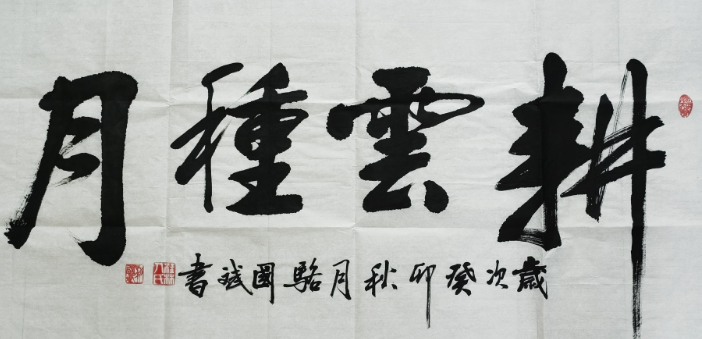 耕雲種月
歲次癸卯秋月駱國斌書